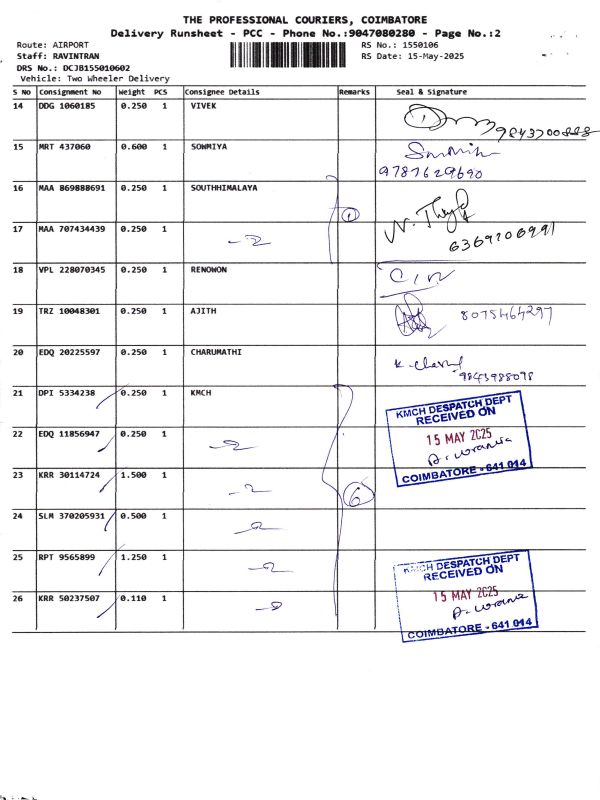 THE PROFESSIONAL COURIERS, COIMBATORE
Delivery Runsheet - PCC - Phone No.:9047080280 - Page No.:2
Route: AIRPORT RS No.: 1550106
Staff: RAVINTRAN RS Date: 15-May-2025
DRS No.: DCJB155010602
Vehicle: Two Wheeler Delivery
S No Consignment No Weight PCS Consignee Details Remarks Seal & Signature
14 DDG 1060185 0.250 1 VIVEK
9843700888
15 MRT 437060 0.600 1 SOWMIYA
9787629690
16 MAA 869888691 0.250 1 SOUTHHIMALAYA
17 MAA 707434439 0.250 1
6369206991
18 VPL 228070345 0.250 1 RENOWON
19 TRZ 10048301 0.250 1 AJITH 8075464297
20 EDQ 20225597 0.250 1 CHARUMATHI
9843988098
21 DPI 5334238 0.250 1 KMCH
KMCH DESPATCH DEPT
RECEIVED ON
15 MAY 2025
COIMBATORE - 641 014
22 EDQ 11856947 0.250 1
23 KRR 30114724 1.500 1 6
24 SLM 370205931 0.500 1
25 RPT 9565899 1.250 1
KMCH DESPATCH DEPT
RECEIVED ON
15 MAY 2025
COIMBATORE - 641 014
26 KRR 50237507 0.110 1